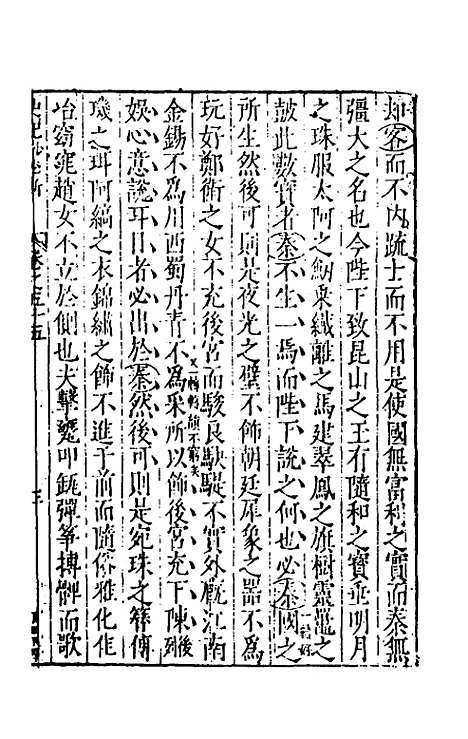 却客而不內疏士而不用是使國無富利之實而秦無
彊大之名也今陛下致昆山之玉有隨和之寶垂明月
之珠服太阿之劍乘纖離之馬建翠鳳之旗樹靈鼉之
鼓此數寶者秦不生一焉而陛下說之何也必秦國之
所生然後可則是夜光之璧不飾朝廷犀象之器不爲
玩好鄭衛之女不充後宮而駿良駃騠不實外廄江南
金錫不爲用西蜀丹青不爲采所以飾後宮充下陳
娛心意說耳目者必出於秦然後可則是宛珠之簪傅
璣之珥阿縞之衣錦繡之飾不進于前而隨俗雅化佳
冶窈窕趙女不立於側也夫擊甕叩缻彈箏搏髀而歌